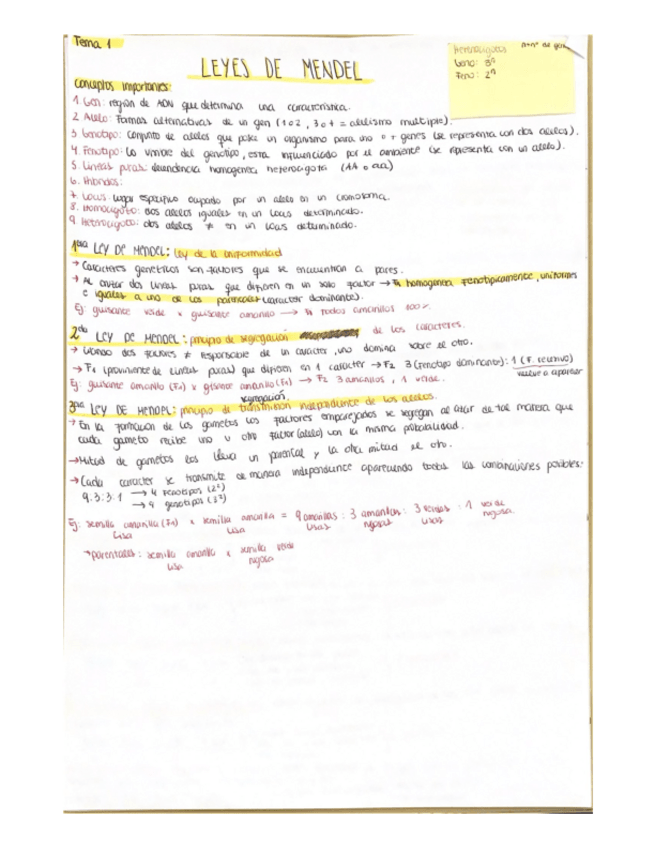 Tema 1
LEYES DE MENDEL
Heterocigotos nº de gen
Geno: 3ⁿ
Feno: 2ⁿ
Conceptos importantes:
1. Gen: región de ADN que determina una característica.
2. Alelo: Formas alternativas de un gen (1 o 2, 3 o + = alelismo multiple).
3. Genotipo: Conjunto de alelos que posee un organismo para uno o + genes (se representa con dos alelos).
4. Fenotipo: Lo visible del genotipo, esta influenciado por el ambiente (se representa con un alelo).
5. Líneas puras: descendencia homogenea heterocigota (AA o aa)
6. Híbridos:
7. Locus: lugar específico ocupado por un alelo en un cromosoma.
8. Homocigoto: dos alelos iguales en un locus determinado.
9. Heterocigoto: dos alelos ≠ en un locus determinado.
1era LEY DE MENDEL: Ley de la uniformidad
→ Caracteres geneticos son factores que se encuentran a pares.
→ Al cruzar dos líneas puras que difieren en un solo factor → F1 homogenea fenotipicamente, uniformes
e iguales a uno de los parentales (caracter dominante).
Ej: guisante verde x guisante amarillo → F1 todos amarillos 100%
2da LEY DE MENDEL: principio de segregación de los caracteres.
→ Cuando dos factores ≠ responsable de un caracter, uno domina sobre el otro.
→ F1 (proviniente de líneas puras) que difieren en 1 caracter → F2 3 (fenotipo dominante): 1 (F. recesivo)
vuelve a aparecer
Ej: guisante amarillo (F1) x guisante amarillo (F1) → F2 3 amarillos, 1 verde.
segregación.
3era LEY DE MENDEL: principio de transmision independiente de los alelos.
→ En la formación de los gametos los factores emparejados se segregan al azar de tal manera que
cada gameto recibe uno u otro factor (alelo) con la misma probabilidad.
→ Mitad de gametos los lleva un parental y la otra mitad el otro.
→ Cada caracter se transmite de manera independiente apareciendo todas las combinaciones posibles:
9:3:3:1 → 4 fenotipos (2²)
→ 9 genotipos (3²)
Ej: semilla amarilla (F1) x semilla amarilla = 9 amarillas : 3 amarillas : 3 verdes : 1 verde
lisa lisa lisas rugosas lisas rugosa.
→ parentales: semilla amarilla x semilla verde
lisa rugosa